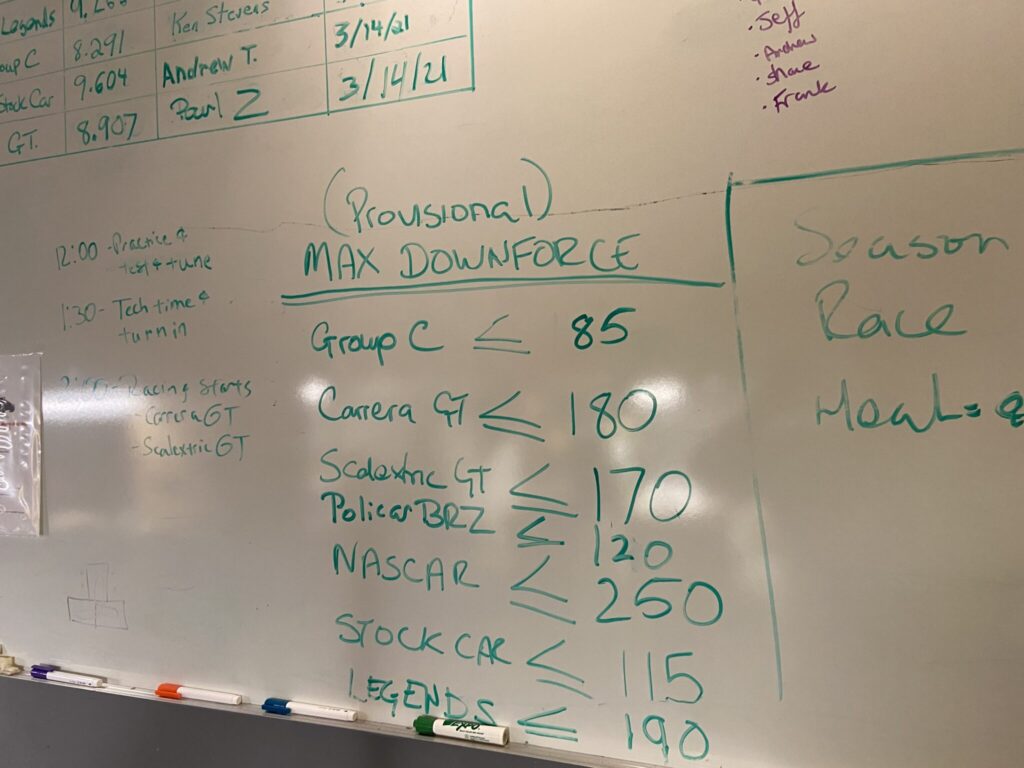 Legends 9.26 Ken Stevens
oup C 8.291 Andrew T. 3/14/21
Stock Car 9.604 Paul Z 3/14/21
GT. 8.907
Jeff
Andrew
Frank
(Provisional)
MAX DOWNFORCE
Group C ≤ 85
Carrera GT ≤ 180
Scalextric GT ≤ 170
Policar BRZ ≤ 120
NASCAR ≤ 250
STOCK CAR ≤ 115
LEGENDS ≤ 190
12:00 - Practice &
test & tune
1:30 - Tech time &
turn in
Racing Starts
- Carrera GT
- Scalextric GT
Season
Race
Heat =
EXPO